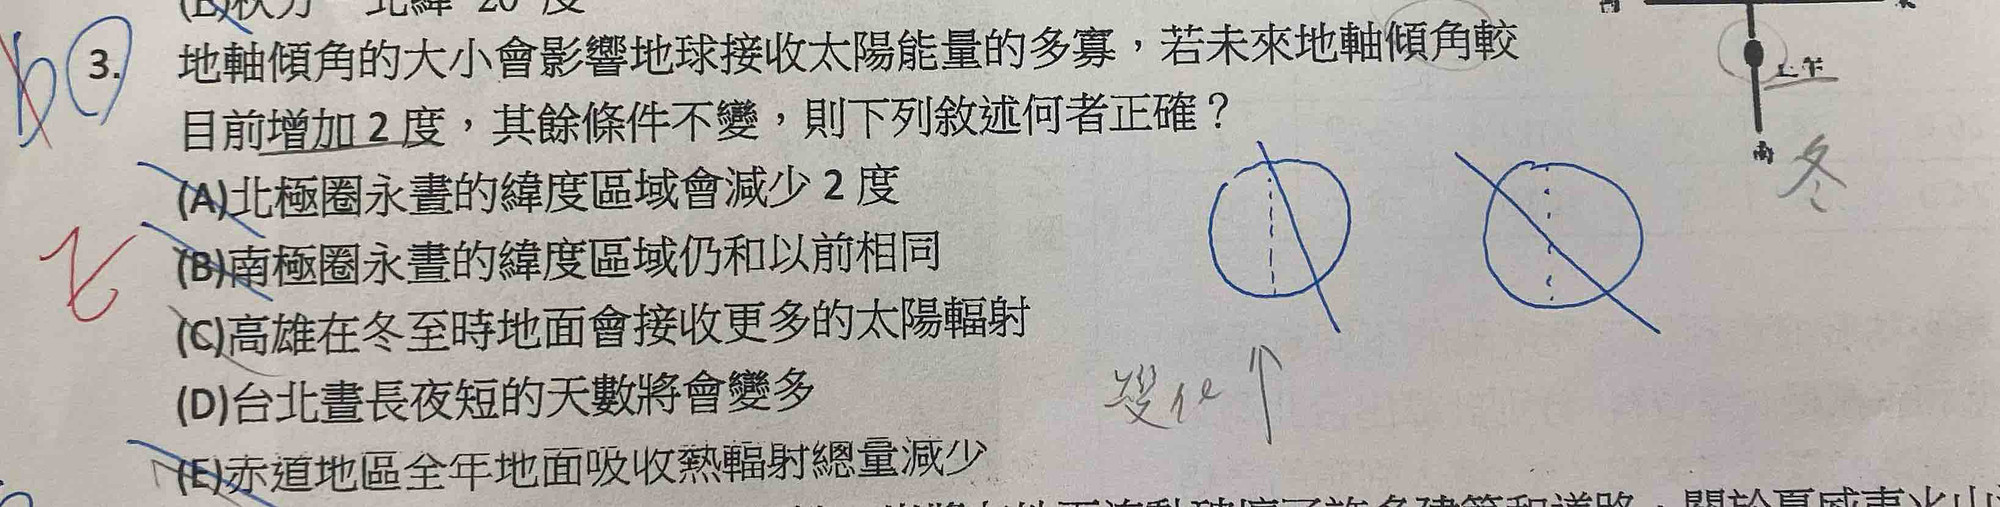 (E)秋分 北緯 20 度
3. 地軸傾角的大小會影響地球接收太陽能量的多寡，若未來地軸傾角較
目前增加 2 度，其餘條件不變，則下列敘述何者正確？
(A)北極圈永晝的緯度區域會減少 2 度
(B)南極圈永晝的緯度區域仍和以前相同
(C)高雄在冬至時地面會接收更多的太陽輻射
(D)台北晝長夜短的天數將會變多
(E)赤道地區全年地面吸收熱輻射總量減少
上午
南
冬
變化↑
E